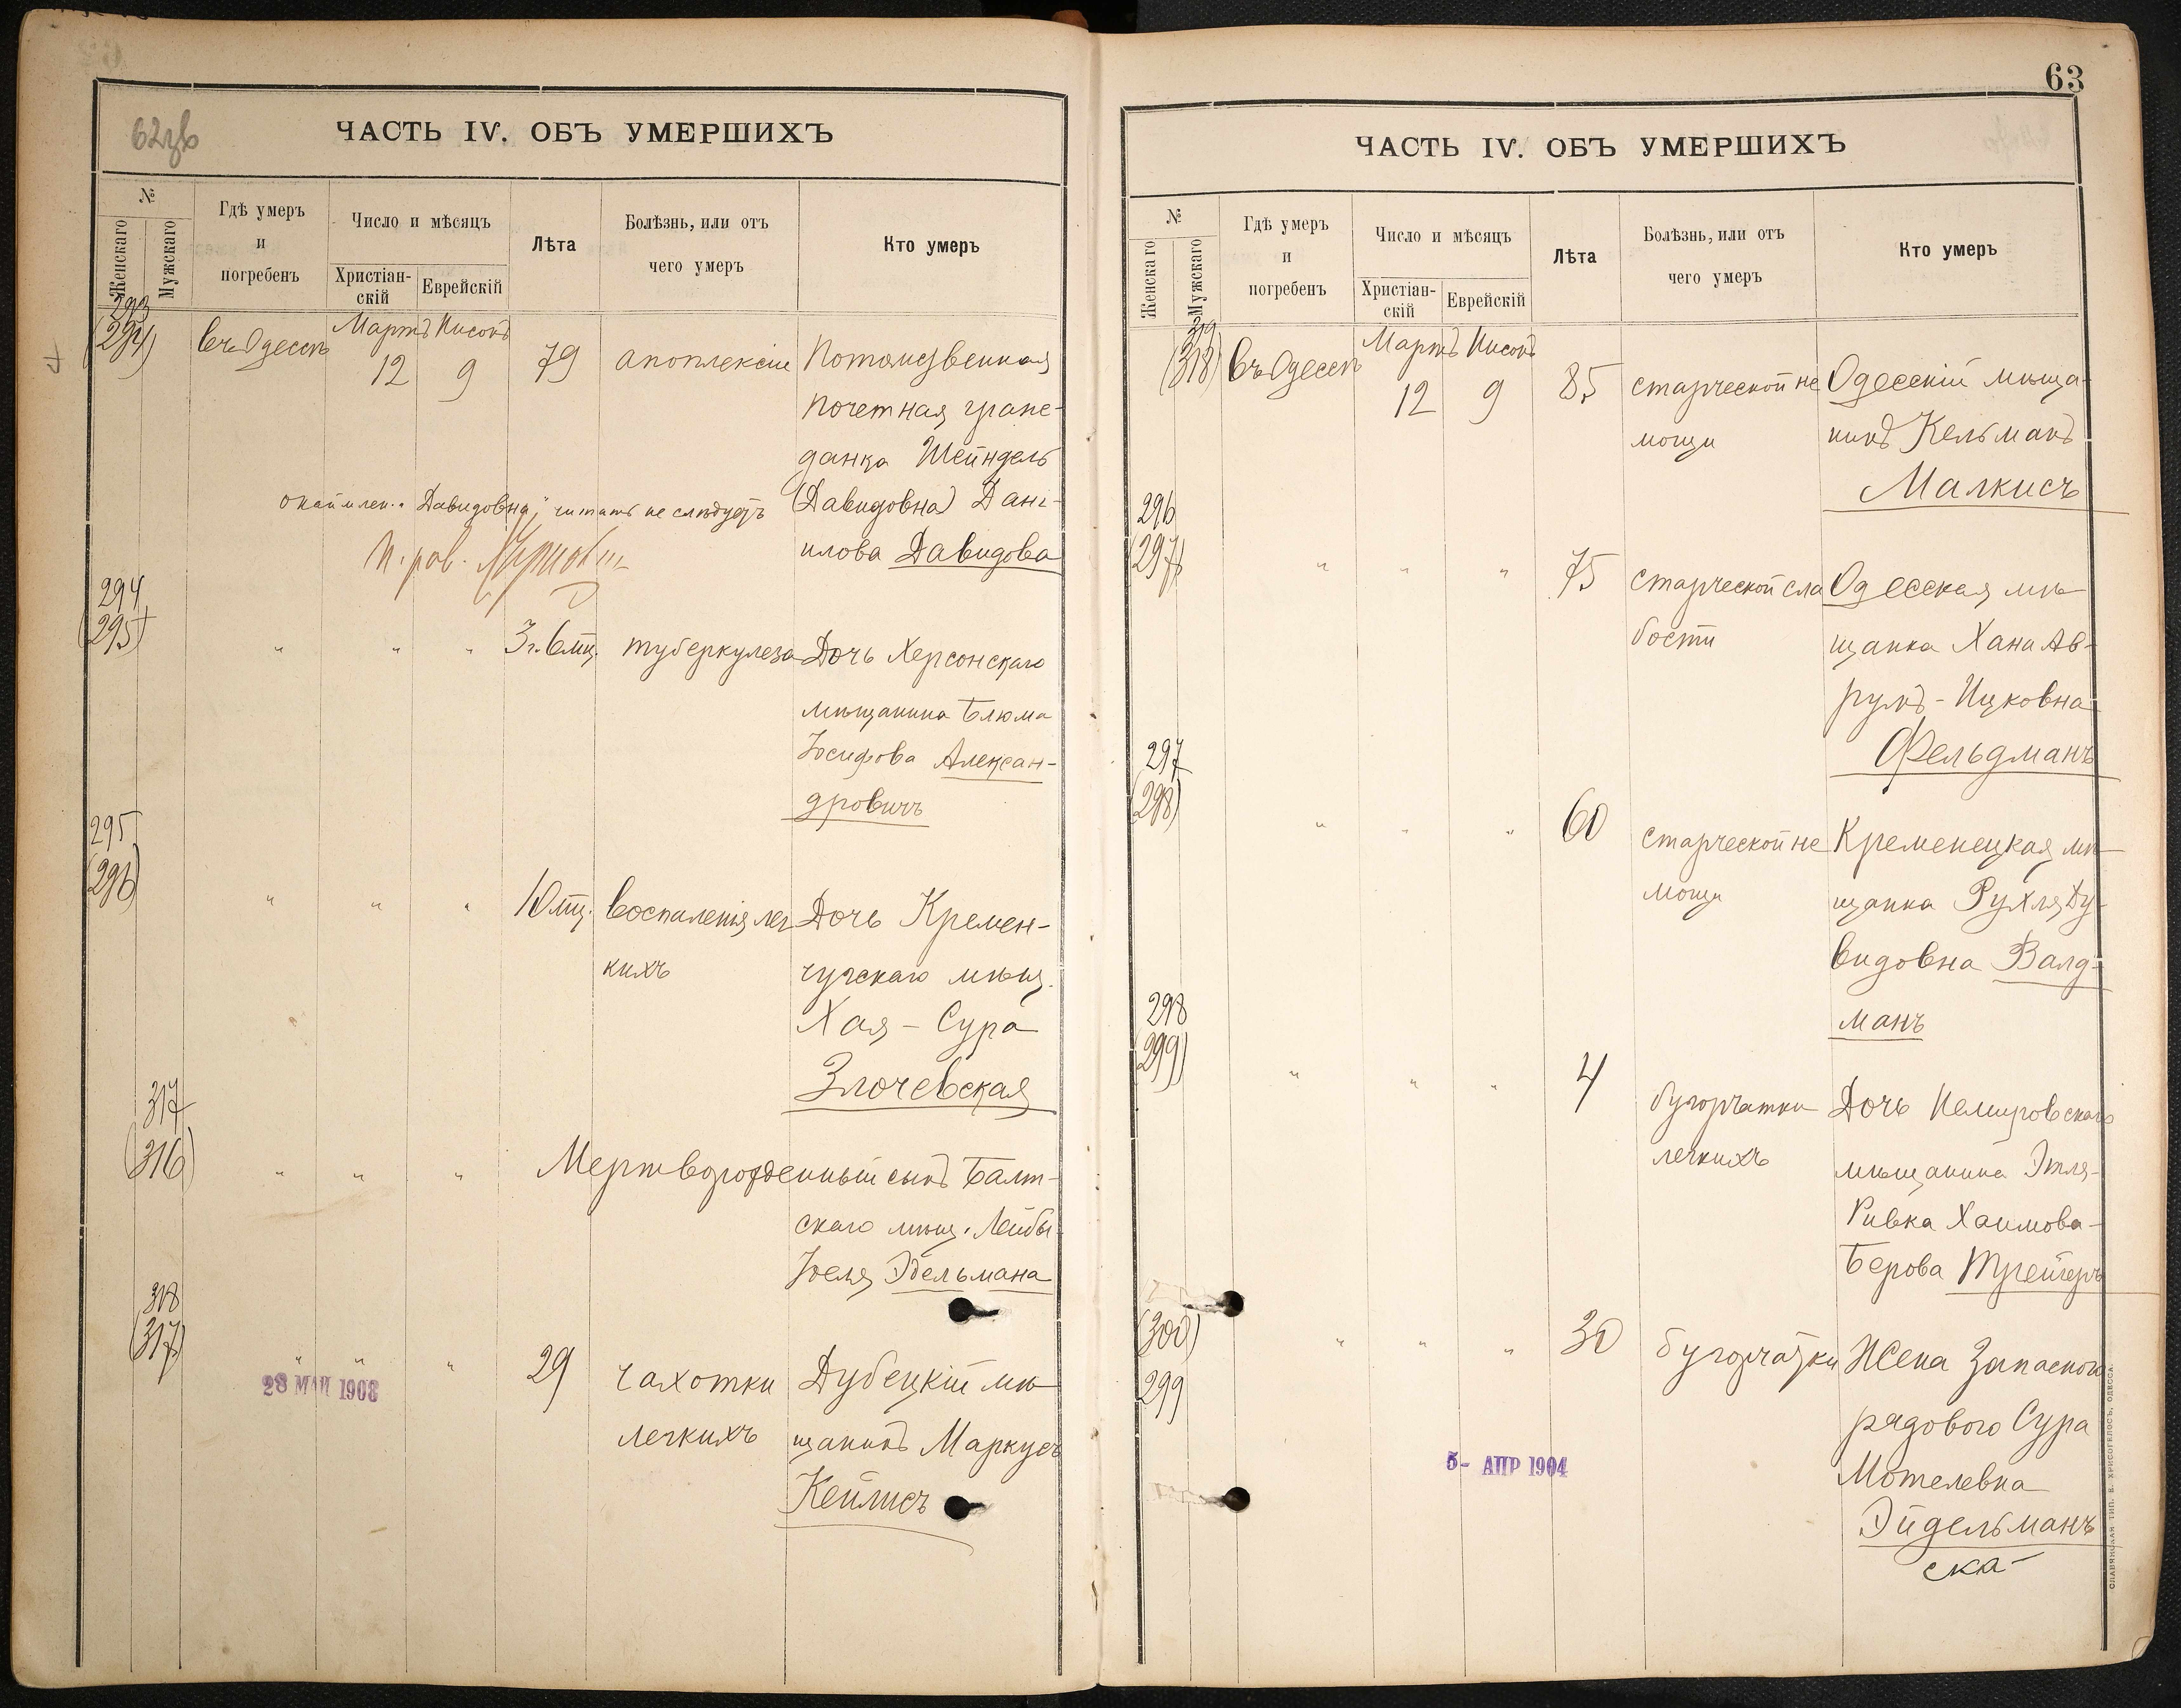 62зв
ЧАСТЬ IV. ОБЪ УМЕРШИХЪ
№
Женскаго
Мужскаго
Гдѣ умеръ
и
погребенъ
Число и мѣсяцъ
Христіан-
скій
Еврейскій
Лѣта
Болѣзнь, или отъ
чего умеръ
Кто умеръ
293
(294)
въ Одессѣ
Мартъ Нисонъ
12 9 79 апоплексіи Потомственная
почетная граж-
данка Шейндель
окаймлен. "Давидовна" читать не слѣдуетъ (Давидовна) Дани-
илова Давидова
П. рав.
294
(295)
" " " 3 г. 6 мц. туберкулеза Дочь Херсонскаго
мѣщанина Блюма
Іосифова Алексан-
дровичъ
295
(296)
" " " 10 мц. воспаленія лег Дочь Кремен-
кихъ чугскаго мѣщ.
Хая - Сура
Злочевская
317
(316)
" " " Мертворожденный сынъ Балт-
скаго мѣщ. Лейбы-
Іоеля Эдельмана
318
(317)
" " " 29 чахотки Дубецкій мѣ-
легкихъ щанинъ Маркусъ
Кейлисъ
28 МАИ 1903
63
ЧАСТЬ IV. ОБЪ УМЕРШИХЪ
№
Женскаго
Мужскаго
Гдѣ умеръ
и
погребенъ
Число и мѣсяцъ
Христіан-
скій
Еврейскій
Лѣта
Болѣзнь, или отъ
чего умеръ
Кто умеръ
319
(318)
въ Одессѣ
Мартъ Нисонъ
12 9 85 старческой не Одесскій мѣща-
мощи нинъ Кельманъ
Малкисъ
296
(297)
" " " 75 старческой сла Одесская мѣ-
бости щанка Хана Ав-
румъ - Ицковна
Фельдманъ
297
(298)
" " " 60 старческой не Кременецкая мѣ-
мощи щанка Рухля Ду-
видовна Валд-
манъ
298
(299)
" " " 4 бугорчатки Дочь Немировскаго
легкихъ мѣщанина Этля-
Ривка Хаимова-
Берова Трейгеръ
(300)
299
" " " 30 бугорчатки Жена запасного
рядового Сура
Мотелевна
Эйдельманъ
ска-
5- АПР 1904
СЛАВЯНСКАЯ ТИП. Е. ХРИСОГЕЛОСЪ, ОДЕССА.